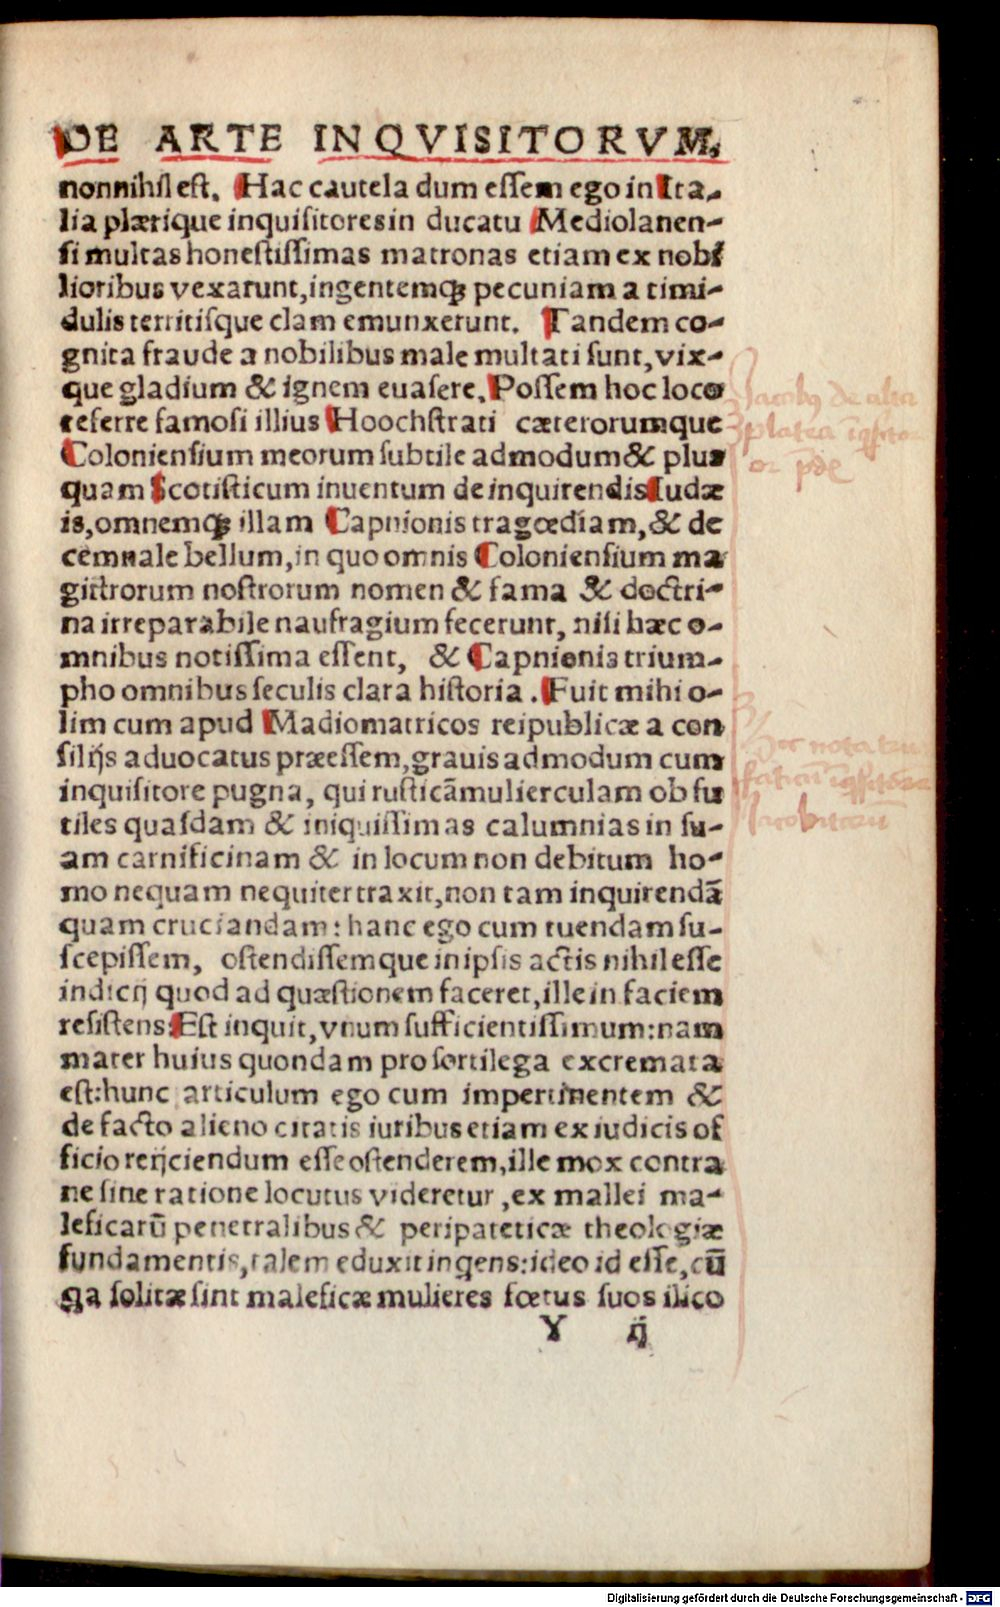 DE ARTE INQVISITORVM,
nonnihil est. Hac cautela dum essem ego in Ita-
lia plærique inquisitores in ducatu Mediolanen-
si multas honestissimas matronas etiam ex nobi
lioribus vexarunt, ingentemq; pecuniam a timi-
dulis territisque clam emunxerunt. Tandem co-
gnita fraude a nobilibus male multati sunt, vix-
que gladium & ignem euasere. Possem hoc loco
referre famosi illius Hoochstrati cæterorumque
Coloniensium meorum subtile admodum & plus
quam Scotisticum inuentum de inquirendis Iudæ
is, omnemq; illam Capnionis tragœdiam, & de
cemnale bellum, in quo omnis Coloniensium ma
gistrorum nostrorum nomen & fama & doctri-
na irreparabile naufragium fecerunt, nisi hæc o-
mnibus notissima essent, & Capnionis trium-
pho omnibus seculis clara historia. Fuit mihi o-
lim cum apud Madiomatricos reipublicæ a con
silijs aduocatus præessem, grauis admodum cum
inquisitore pugna, qui rusticã mulierculam ob fu
tiles quasdam & iniquissimas calumnias in su-
am carnificinam & in locum non debitum ho-
mo nequam nequiter traxit, non tam inquirendã
quam cruciandam: hanc ego cum tuendam su-
scepissem, ostendissemque in ipsis actis nihil esse
indicij quod ad quæstionem faceret, ille in faciem
resistens: Est inquit, vnum sufficientissimum: nam
mater huius quondam pro sortilega excremata
est: hunc articulum ego cum impertinentem &
de facto alieno citatis iuribus etiam ex iudicis of
ficio reijciendum esse ostenderem, ille mox contra
ne sine ratione locutus videretur, ex mallei ma-
leficarũ penetralibus & peripateticæ theologiæ
fundamentis, talem eduxit ingens: ideo id esse, cũ
ga solitæ sint maleficæ mulieres fœtus suos ilico
Y ij
Jacobus de alta
platea
or
nota
Jacobitarũ
Digitalisierung gefördert durch die Deutsche Forschungsgemeinschaft - DFG